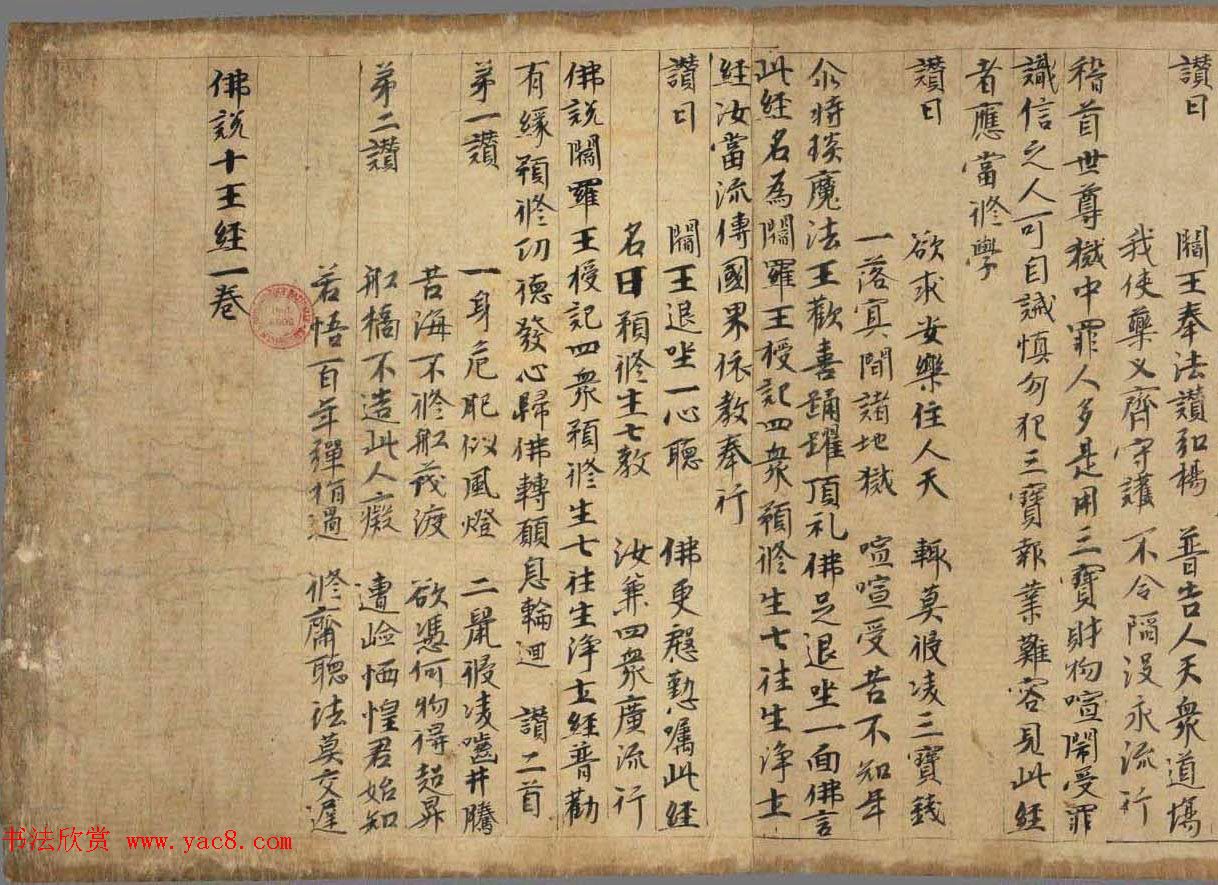 讃曰　閻王奉法讃弘楊　普告人天衆道塲
我使藥叉齊守護　不令陷没永流行
稽首世尊獄中罪人多是用三寶財物喧閙受罪
識信之人可自誡慎勿犯三寶報業難容見此経
者應當修學
讃曰　欲求安樂住人天　輙莫侵凌三寶錢
一落冥間諸地獄　喧喧受苦不知年
尒時琰魔法王歡喜踊躍頂礼佛足退坐一面佛言
此経名為閻羅王授記四衆預修生七往生淨土
経汝當流傳國界依教奉行
讃曰　閻王退坐一心聽　佛更慇懃囑此経
名曰預修生七教　汝兼四衆廣流行
佛説閻羅王授記四衆預修生七往生淨土経普勸
有緣預修功德發心歸佛轉願息輪迴　讃二首
苐一讃　一身危脆似風燈　二鼠侵凌嚙井騰
苦海不修舡筏渡　欲憑何物得超昇
苐二讃　舡橋不造此人癡　遭嶮恓惶君始知
若悟百年彈指過　修齋聽法莫交遲
佛説十王経一卷
书法欣赏 www.yac8.com